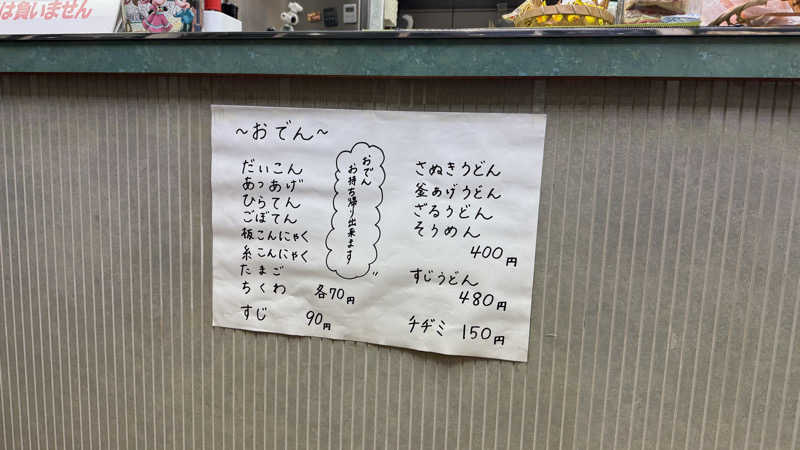 は負いません
～おでん～
だいこん
あつあげ
ひらてん
ごぼてん
板こんにゃく
糸こんにゃく
たまご
ちくわ 各70円
すじ 90円
おでん
お持ち帰り出来ます
さぬきうどん
釜あげうどん
ざるうどん
そうめん
400円
すじうどん
480円
チヂミ 150円